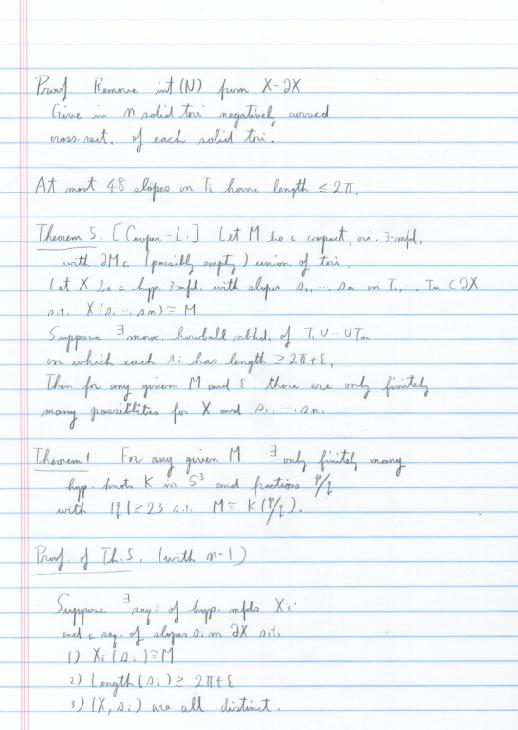 Proof. Remove int(N) from X-∂X
Give in n solid tori negatively curved
cross-sect. of each solid tori.
At most 48 slopes on Ti have length ≤ 2π.
Theorem 5. [Cooper-L.] Let M be a compact, ori. 3-mfd.
with ∂M a (possibly empty) union of tori.
Let X be a hyp. 3-mfd. with slopes s1, ..., sn on T1, ..., Tn ⊂ ∂X
s.t. X(s1, ..., sn) ≅ M
Suppose ∃ max. horoball nbhd. of T1 ∪ ... ∪ Tn
on which each si has length ≥ 2π+ε,
Then for any given M and ε there are only finitely
many possiblities for X and s1, ..., sn.
Theorem 1 For any given M ∃ only finitely many
hyp. knots K in S³ and fractions p/q
with |q| ≥ 23 s.t. M ≅ K(p/q).
Proof. of Th.5. (with n=1)
Suppose ∃ seq. of hyp. mfds Xi
and a seq. of slopes si in ∂X s.t.
1) Xi(si) ≅ M
2) Length(si) ≥ 2π+ε
3) (X, si) are all distinct.